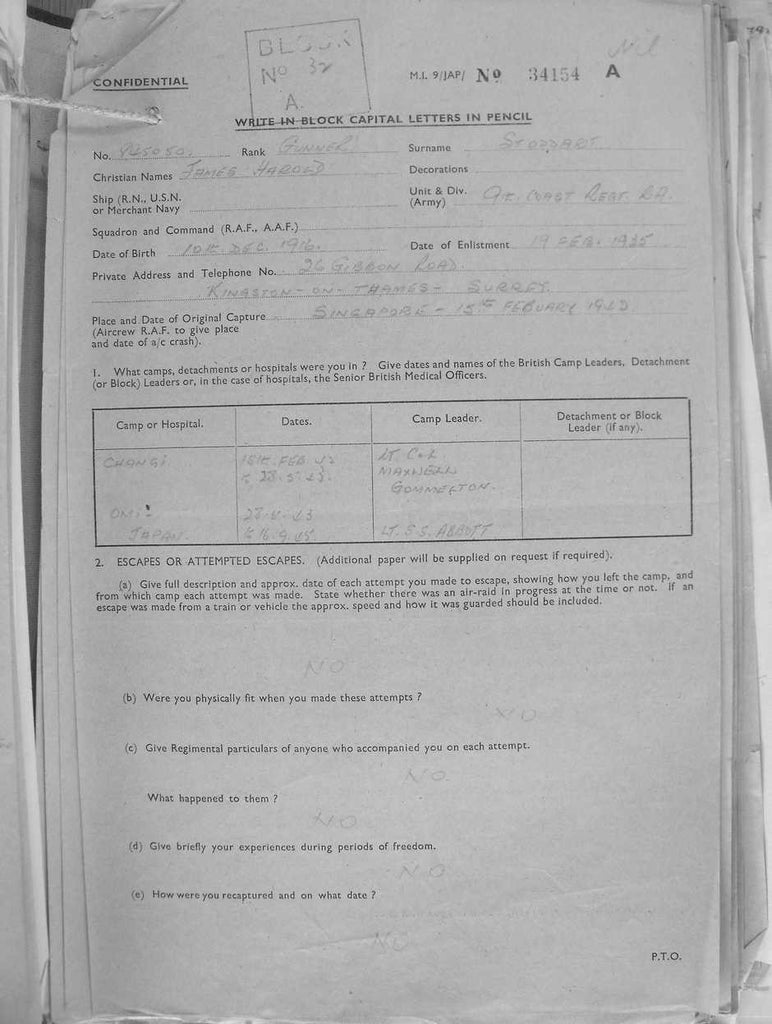 Nil
BLOCK
No 32
A.
CONFIDENTIAL
M.I. 9/JAP/ No 34154 A
WRITE IN BLOCK CAPITAL LETTERS IN PENCIL
No. Rank GUNNER Surname STODDART
Christian Names JAMES HAROLD Decorations
Ship (R.N., U.S.N. or Merchant Navy
Unit & Div. (Army) 9TH. COAST REGT. RA.
Squadron and Command (R.A.F., A.A.F.)
Date of Birth 10th DEC. 1916. Date of Enlistment 19 FEB. 1935
Private Address and Telephone No. 26 GIBBON ROAD.
KINGSTON-ON-THAMES- SURREY.
Place and Date of Original Capture SINGAPORE - 15th FEBUARY 1942
(Aircrew R.A.F. to give place
and date of a/c crash).
1. What camps, detachments or hospitals were you in ? Give dates and names of the British Camp Leaders, Detachment
(or Block) Leaders or, in the case of hospitals, the Senior British Medical Officers.
Camp or Hospital. Dates. Camp Leader. Detachment or Block
Leader (if any).
CHANGI. 15th. FEB 42 LT COL
28.5.43. MAXWELL
GOMMELTON.
OMI 43
JAPAN. 9.45 LT. S.S. ABBOTT
2. ESCAPES OR ATTEMPTED ESCAPES. (Additional paper will be supplied on request if required).
(a) Give full description and approx. date of each attempt you made to escape, showing how you left the camp, and
from which camp each attempt was made. State whether there was an air-raid in progress at the time or not. If an
escape was made from a train or vehicle the approx. speed and how it was guarded should be included.
NO
(b) Were you physically fit when you made these attempts ?
NO
(c) Give Regimental particulars of anyone who accompanied you on each attempt.
NO
What happened to them ?
NO
(d) Give briefly your experiences during periods of freedom.
NO
(e) How were you recaptured and on what date ?
NO
P.T.O.